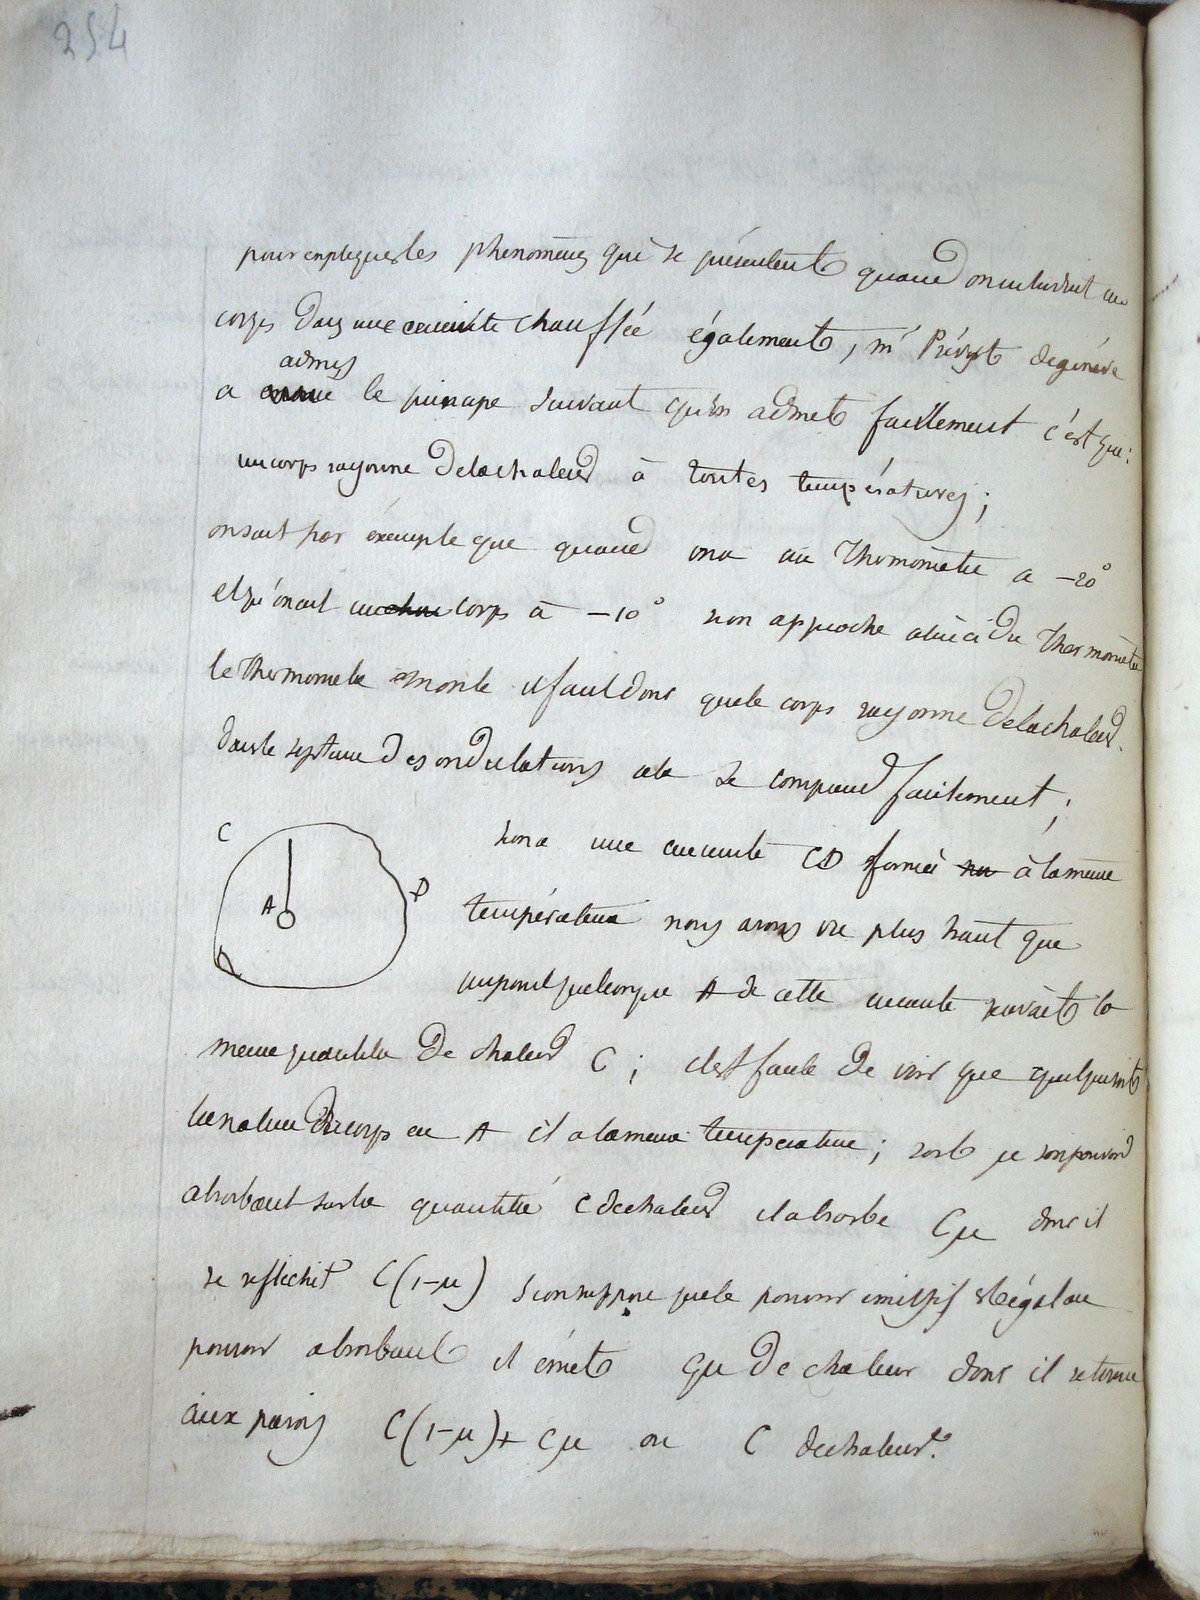 254
pour expliquer les phenomènes qui se présentent quand on introduit un
corps dans une enceinte chauffée également, mr Prévost de genève
admis
a le principe suivant qu'on admet facilement c'est que:
un corps rayonne de la chaleur à toutes températures;
on sait par éxemple que quand on a un Thermomètre a -20°
et qu'on ait un corps à -10° si on approche celui ci du Thermomètre
le Thermometre monte il faut donc que le corps rayonne de la chaleur.
dans le systeme des ondulations cela se comprend facilement;
C
D
A
si on a une enceinte CD formée à la même
température nous avons vu plus haut que
un point quelconque A de cette enceinte reçevait la
meme quantité de chaleur C; il est facile de voir que quelque soit
la nature du corps en A il a la meme température; soit μ son pouvoir
absorbant sur la quantité C de chaleur il absorbe Cμ donc il
se reflechit C(1-μ) si on suppose que le pouvoir émissif égal au
pouvoir absorbant il émet Cμ de chaleur donc il retourne
aux parois C(1-μ)+Cμ ou C de chaleur.